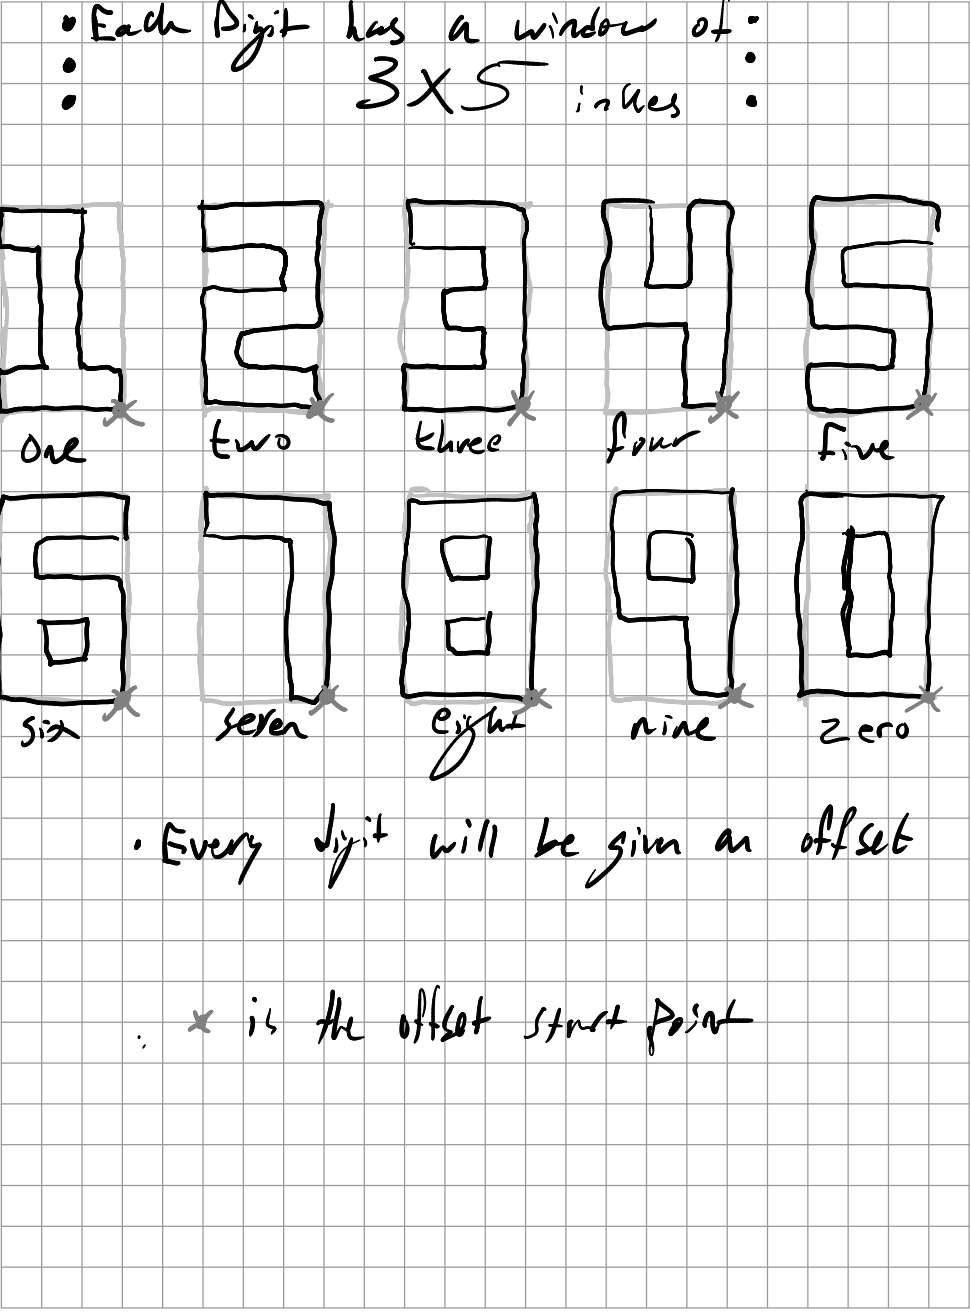 • Each Digit has a window of •
• 3x5 inches •
one two three four five
six seven eight nine zero
• Every digit will be given an offset
x is the offset start point